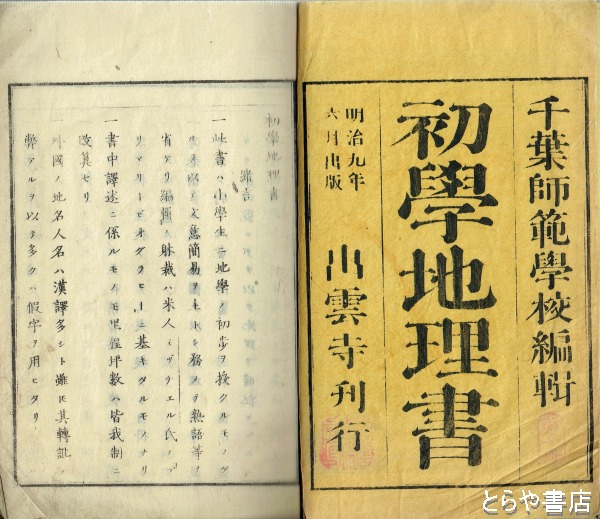 千葉師範學校編輯
初學地理書
明治九年
六月出版
出雲寺刊行
初學地理書
緒言
一此書ハ小學生ニ地學ノ初歩ヲ授クルモノ
文意簡易ヲ務メテ熟語等ヲ
省ケリ編圖ノ躰裁ハ米人ミツチエル氏ノプ
リマリージヨオグラヒーニ基キタルモノナリ
一書中譯述ニ係ルモノモ里程坪數ハ皆我制ニ
改算セリ
一外國ノ地名人名ハ漢譯多シト雖モ其轉訛ノ
弊アルヲ以テ多クハ假字ヲ用ヒタリ
とらや書店